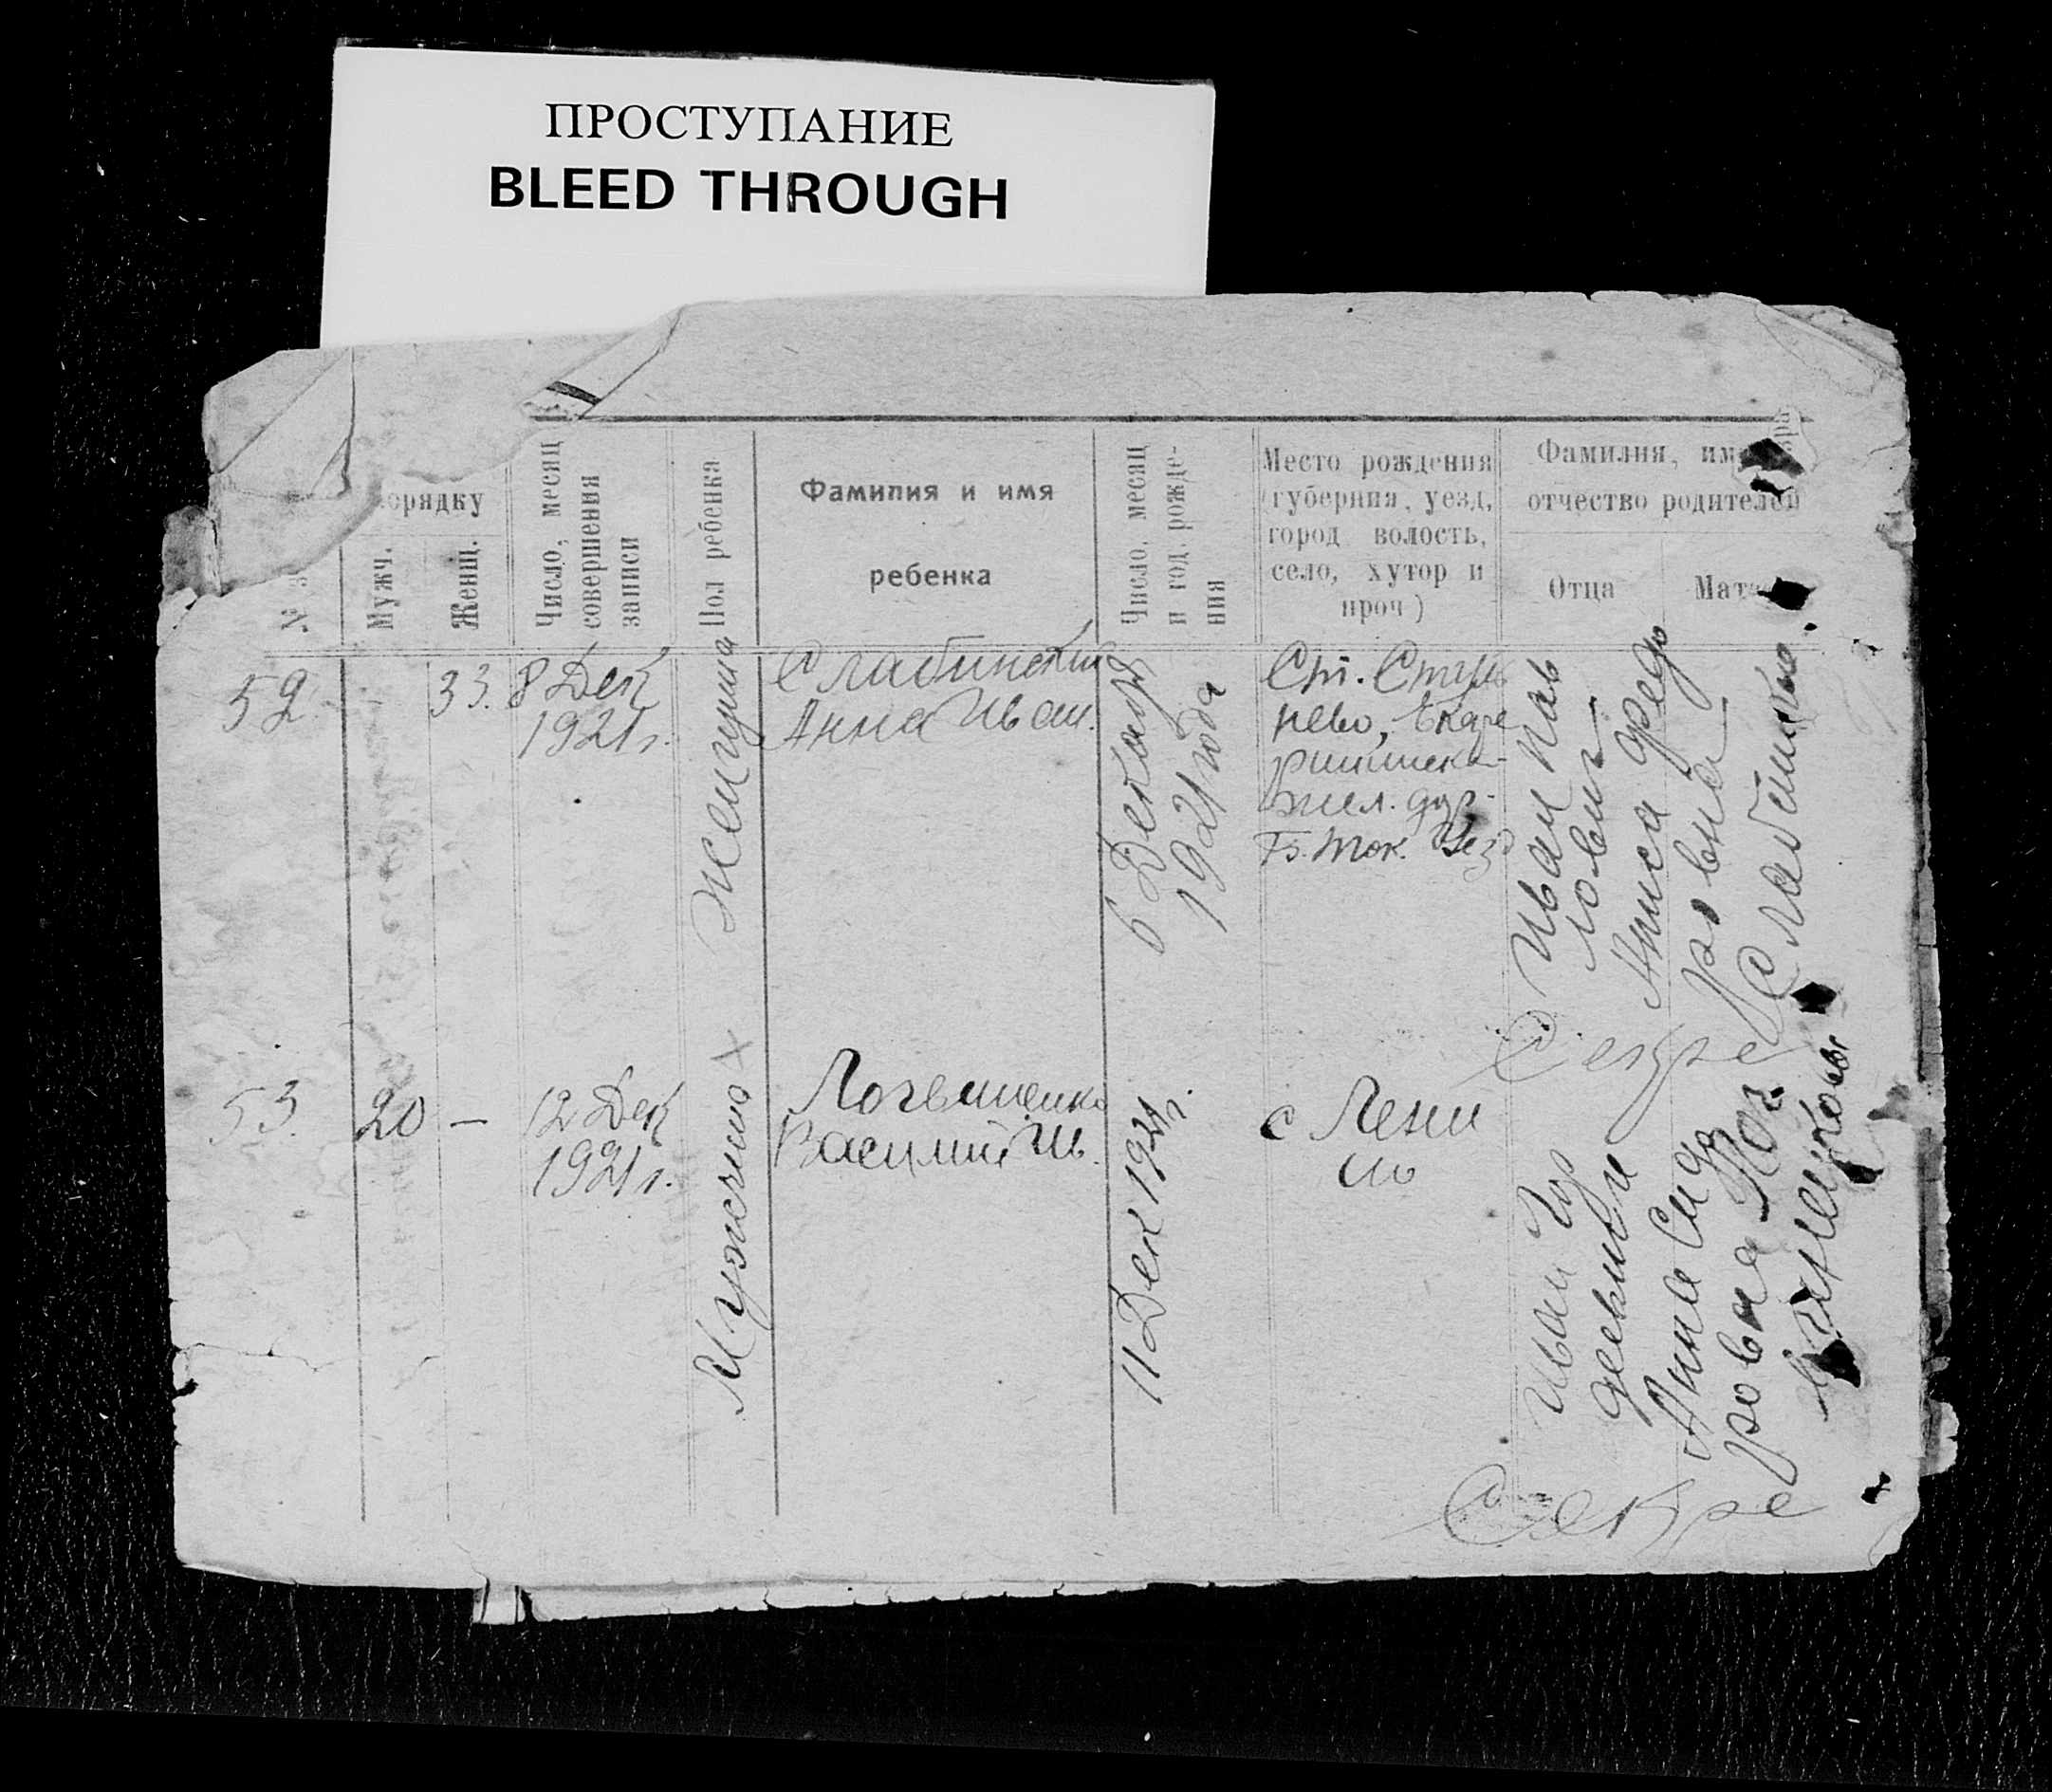 ПРОСТУПАНИЕ
BLEED THROUGH
№
орядку
Мужч.
Женщ.
Число, месяц
совершения
записи
Пол ребенка
Фамилия и имя
ребенка
Число, месяц
и год. рожде-
ния
Место рождения
(губерния, уезд,
город волость,
село, хутор и
проч)
Фамилия, им
отчество родителей
Отца
Мат
52
33.
8 Дек
1921 г.
Женщина
Слабинский
Анна Иван.
6 Декабря
1921 года
Ст.
нево, Екате
рининск
жел. дор.
Уезд
Иван Пав
лович
Аниса Федо
ровна
Слабинские
Секре
53.
20
—
12 Дек
1921 г.
Мужчина
Василий Ив.
11 Дек 1921 г.
с Лени
но
Иван Гор
деевич и
Анна Сидо
ровна Лог
Секре